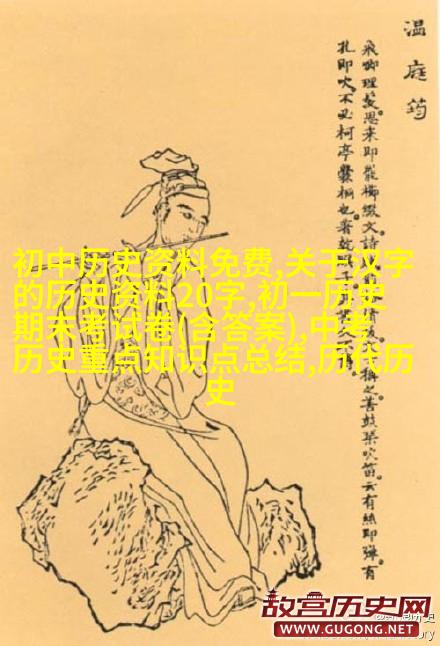 温庭筠
飛卿理髮思来即罷櫛綴文詩
孔即吹不必柯亭爨桐也著乾𦠆子
善鼓琴吹笛云有絲即彈有
初中历史资料免费,关于汉字
的历史资料20字,初一历史
期末考试卷(含答案),中考
历史重点知识点总结,历代历
史
故宫历史网
WWW.GUGONG.NET